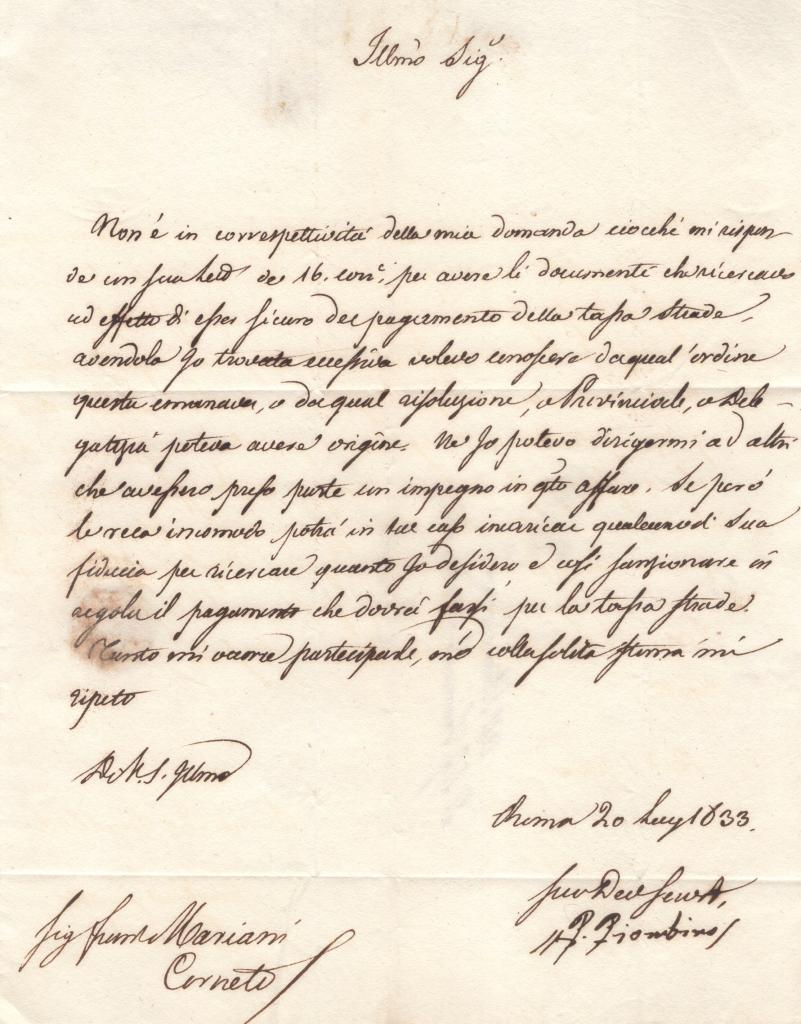 Illmo Sigr
Non è in correspettività della mia domanda ciocché mi rispon-
de in sua de 16. corre. per avere li documenti che ricercavo
ad effetto di esser sicuro del pagamento della tassa strade,
avendola Io trovata eccessiva volevo conoscere da qual'ordine
questa emanava, o da qual risoluzione, o Provinciale, o Dele-
gatizia poteva avere origine. Ne Io potevo dirigermi ad altri
che avessero preso parte un impegno in qto affare. Se però
le reca incomodo potrà in tal caso incaricar qualcuno di Sua
fiducia per ricercare quanto Io desidero e così sanzionare in
regola il pagamento che dovrà farsi per la tassa strade.
Tanto mi occorre parteciparle, ed colla solita stima mi
ripeto
Di V. S. Illma
Roma 20 1833.
suo Dev Servt,
Piombino
Sig Mariani
Corneto